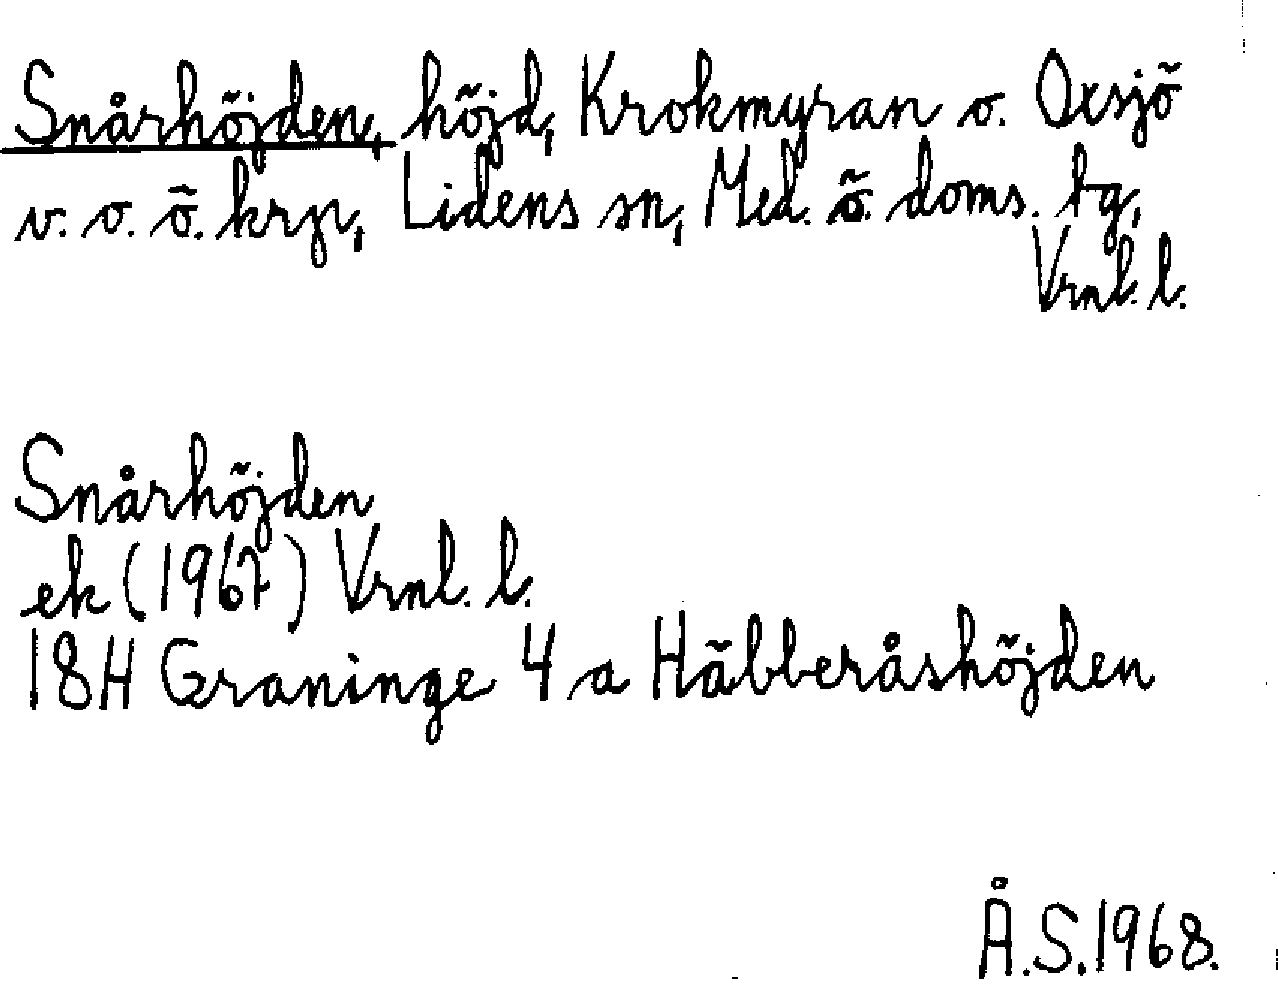 Snårhöjden, höjd, Krokmyran o. Oxsjö
v. o. ö. krp, Lidens sn, Med. ö. doms. tg,
Vrnl. l.
Snårhöjden
ek (1967) Vrnl. l.
18H Graninge 4 a Häbberåshöjden
Å.S.1968.